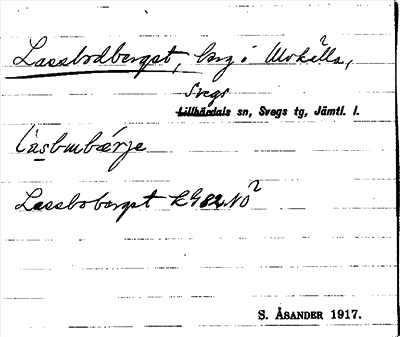 Lassbodberget, berg i Ulvkälla,
Svegs
Lillhärdals sn, Svegs tg, Jämtl. l.
Lassboberget KG82NO2
S. ÅSANDER 1917.